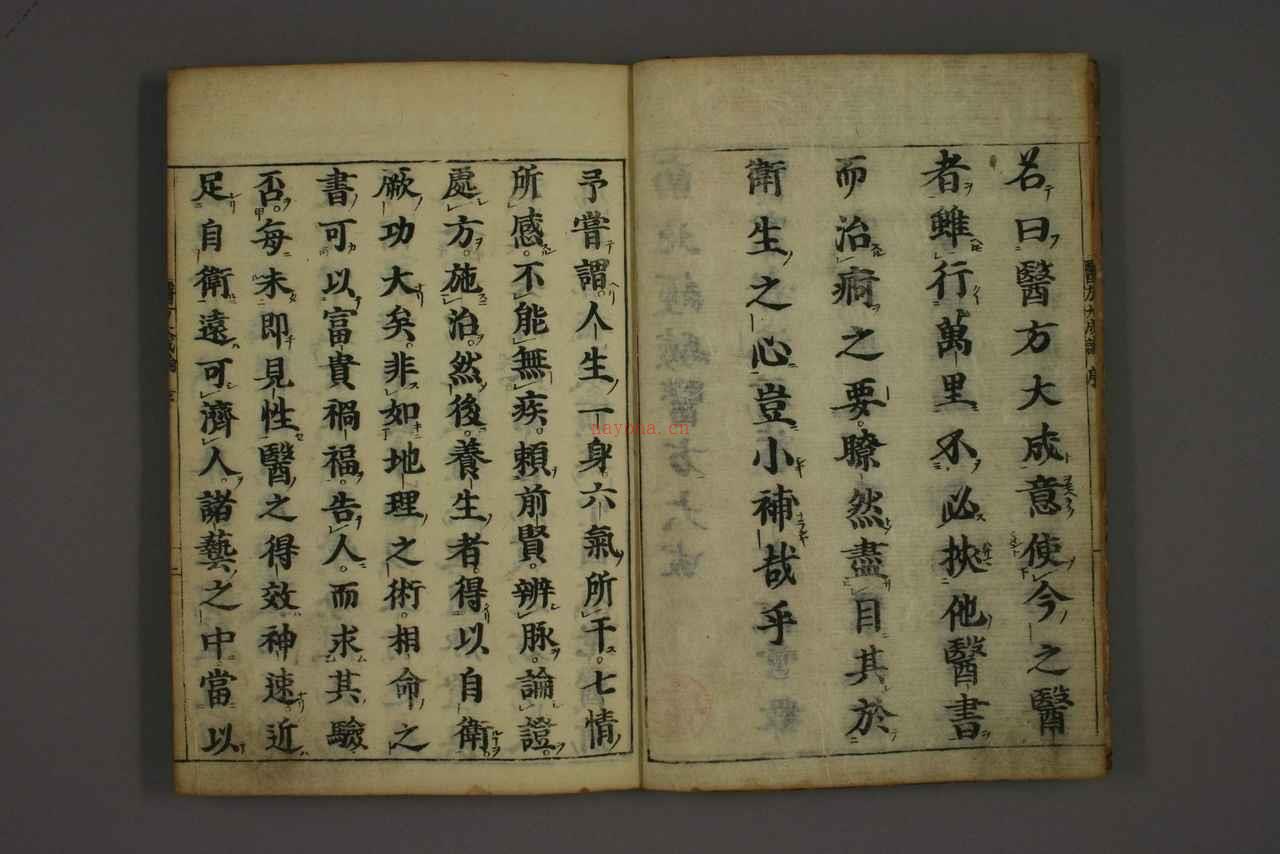 名曰醫方大成意使今之醫
者雖行萬里不必挾他醫書
而治病之要瞭然盡目其於
衛生之心豈小補哉乎
予嘗謂人生一身六氣所干七情
所感不能無疾頼前賢辨脉論證
處方施治然後養生者得以自衛
厥功大矣非如地理之術相命之
書可以富貴禍福告人而求其驗
否每未即見性醫之得效神速近
足自衛遠可濟人諸藝之中當以
nayona.cn